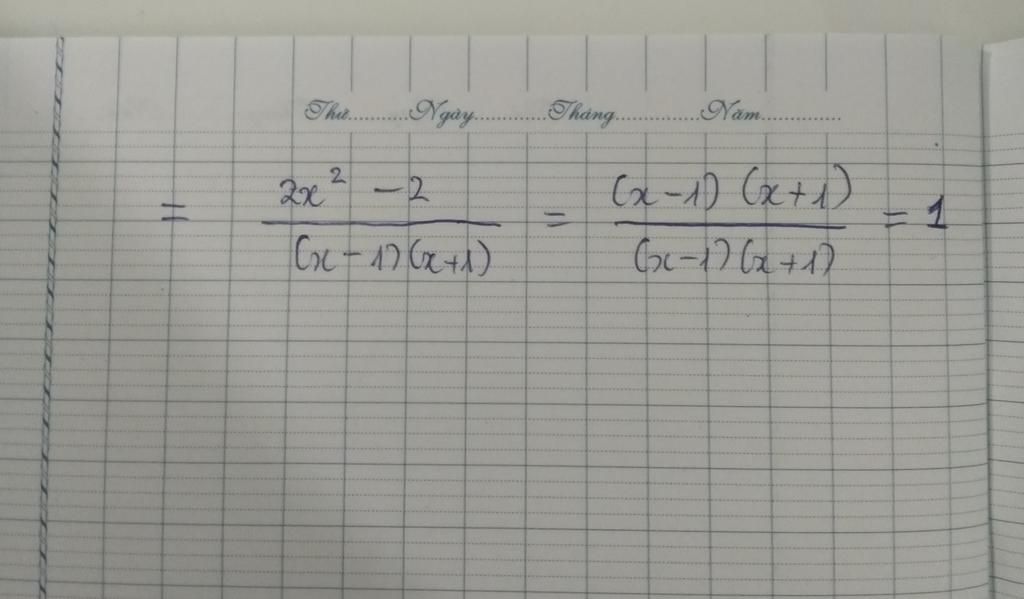 Thứ...........Ngày.............Tháng...............Năm...............
= (2x² - 2)/((x-1)(x+1)) = ((x-1)(x+1))/((x-1)(x+1)) = 1